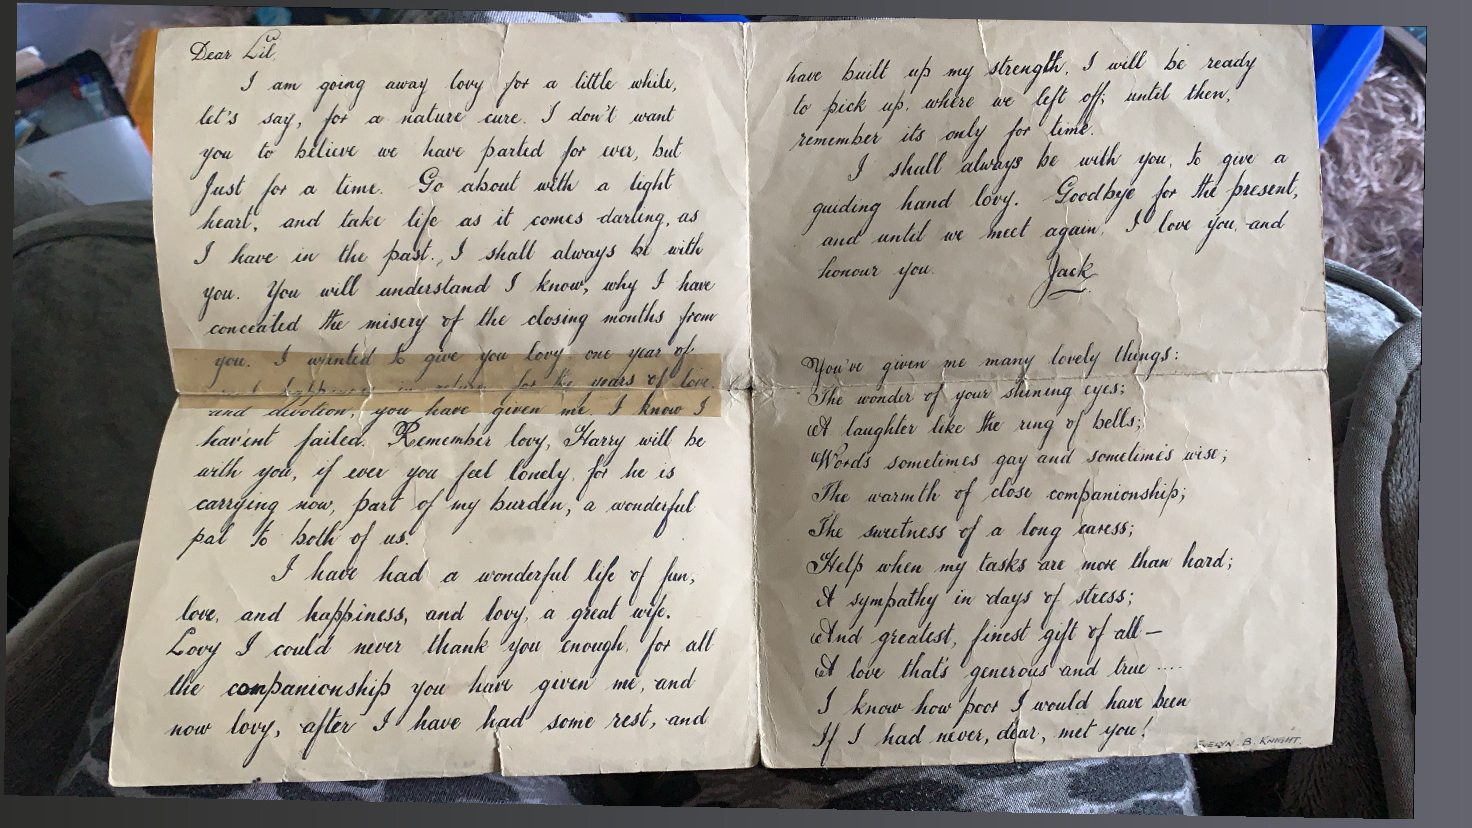 Dear Lil,
I am going away lovy for a little while,
let's say, for a nature cure. I don't want
you to believe we have parted for ever, but
Just for a time. Go about with a light
heart, and take life as it comes darling, as
I have in the past., I shall always be with
you. You will understand I know, why I have
concealed the misery of the closing months from
you. I wanted to give you lovy, one year of
happiness in return for the years of love,
and devotion, you have given me. I know I
hav'ent failed. Remember lovy, Harry will be
with you, if ever you feel lonely, for he is
carrying now, part of my burden, a wonderful
pal to both of us.
I have had a wonderful life of fun,
love, and happiness, and lovy, a great wife.
Lovy I could never thank you enough, for all
the companionship you have given me, and
now lovy, after I have had some rest, and
have built up my strength, I will be ready
to pick up, where we left off, until then,
remember its only for time.
I shall always be with you, to give a
guiding hand lovy. Goodbye for the present,
and until we meet again, I love you, and
honour you. Jack
You've given me many lovely things:
The wonder of your shining eyes;
A laughter like the ring of bells;
Words sometimes gay and sometimes wise;
The warmth of close companionship;
The sweetness of a long caress;
Help when my tasks are more than hard;
A sympathy in days of stress;
And greatest, finest gift of all —
A love that's generous and true ....
I know how poor I would have been
If I had never, dear, met you!
EVELYN. B. KNIGHT.